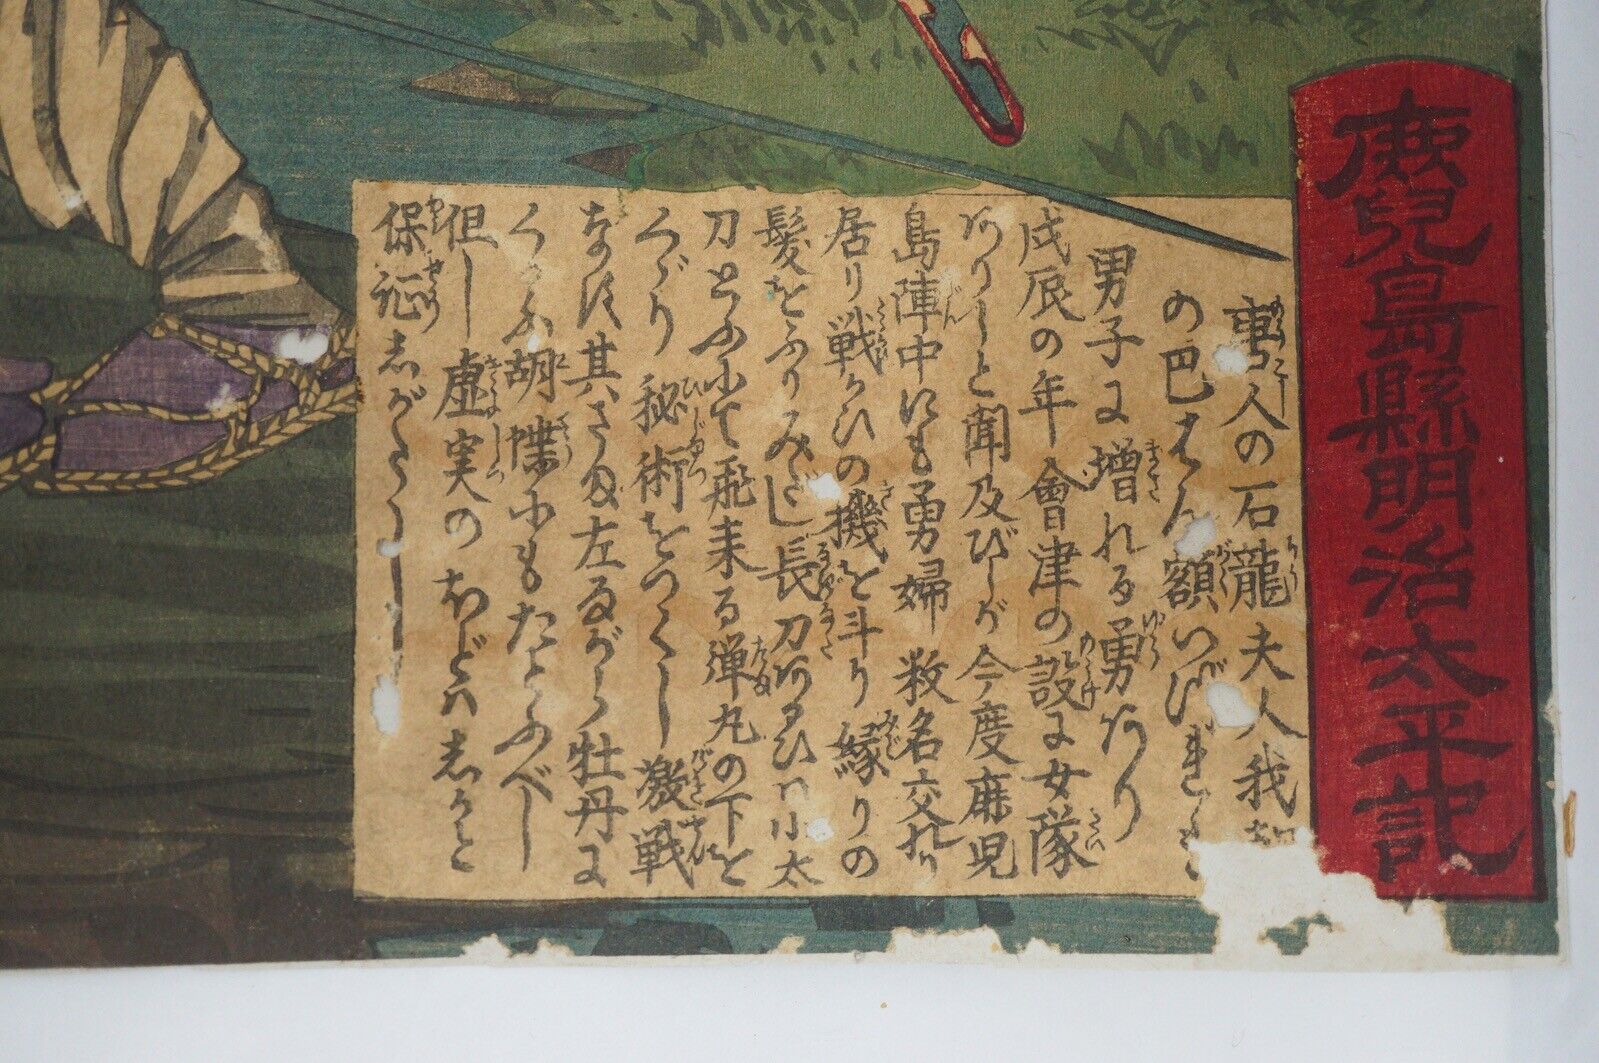 鹿児島縣明治太平記
唐人の石龍夫人我
の巴はん額いづれも
男子に増れる勇あり
戊辰の年會津の設に女隊
ありしと聞及びしが今度鹿児
島陣中にも勇婦数名交れり
居り戦ひの機を斗り緑りの
髪をふりみだし長刀あるひハ小太
刀とふ小て飛来る弾丸の下を
くゞり秘術をつくし激戦
なす其さま左ながら牡丹に
くるふ胡蝶にもたとふべし
但し虚実のほどハしかと
保証しがたし